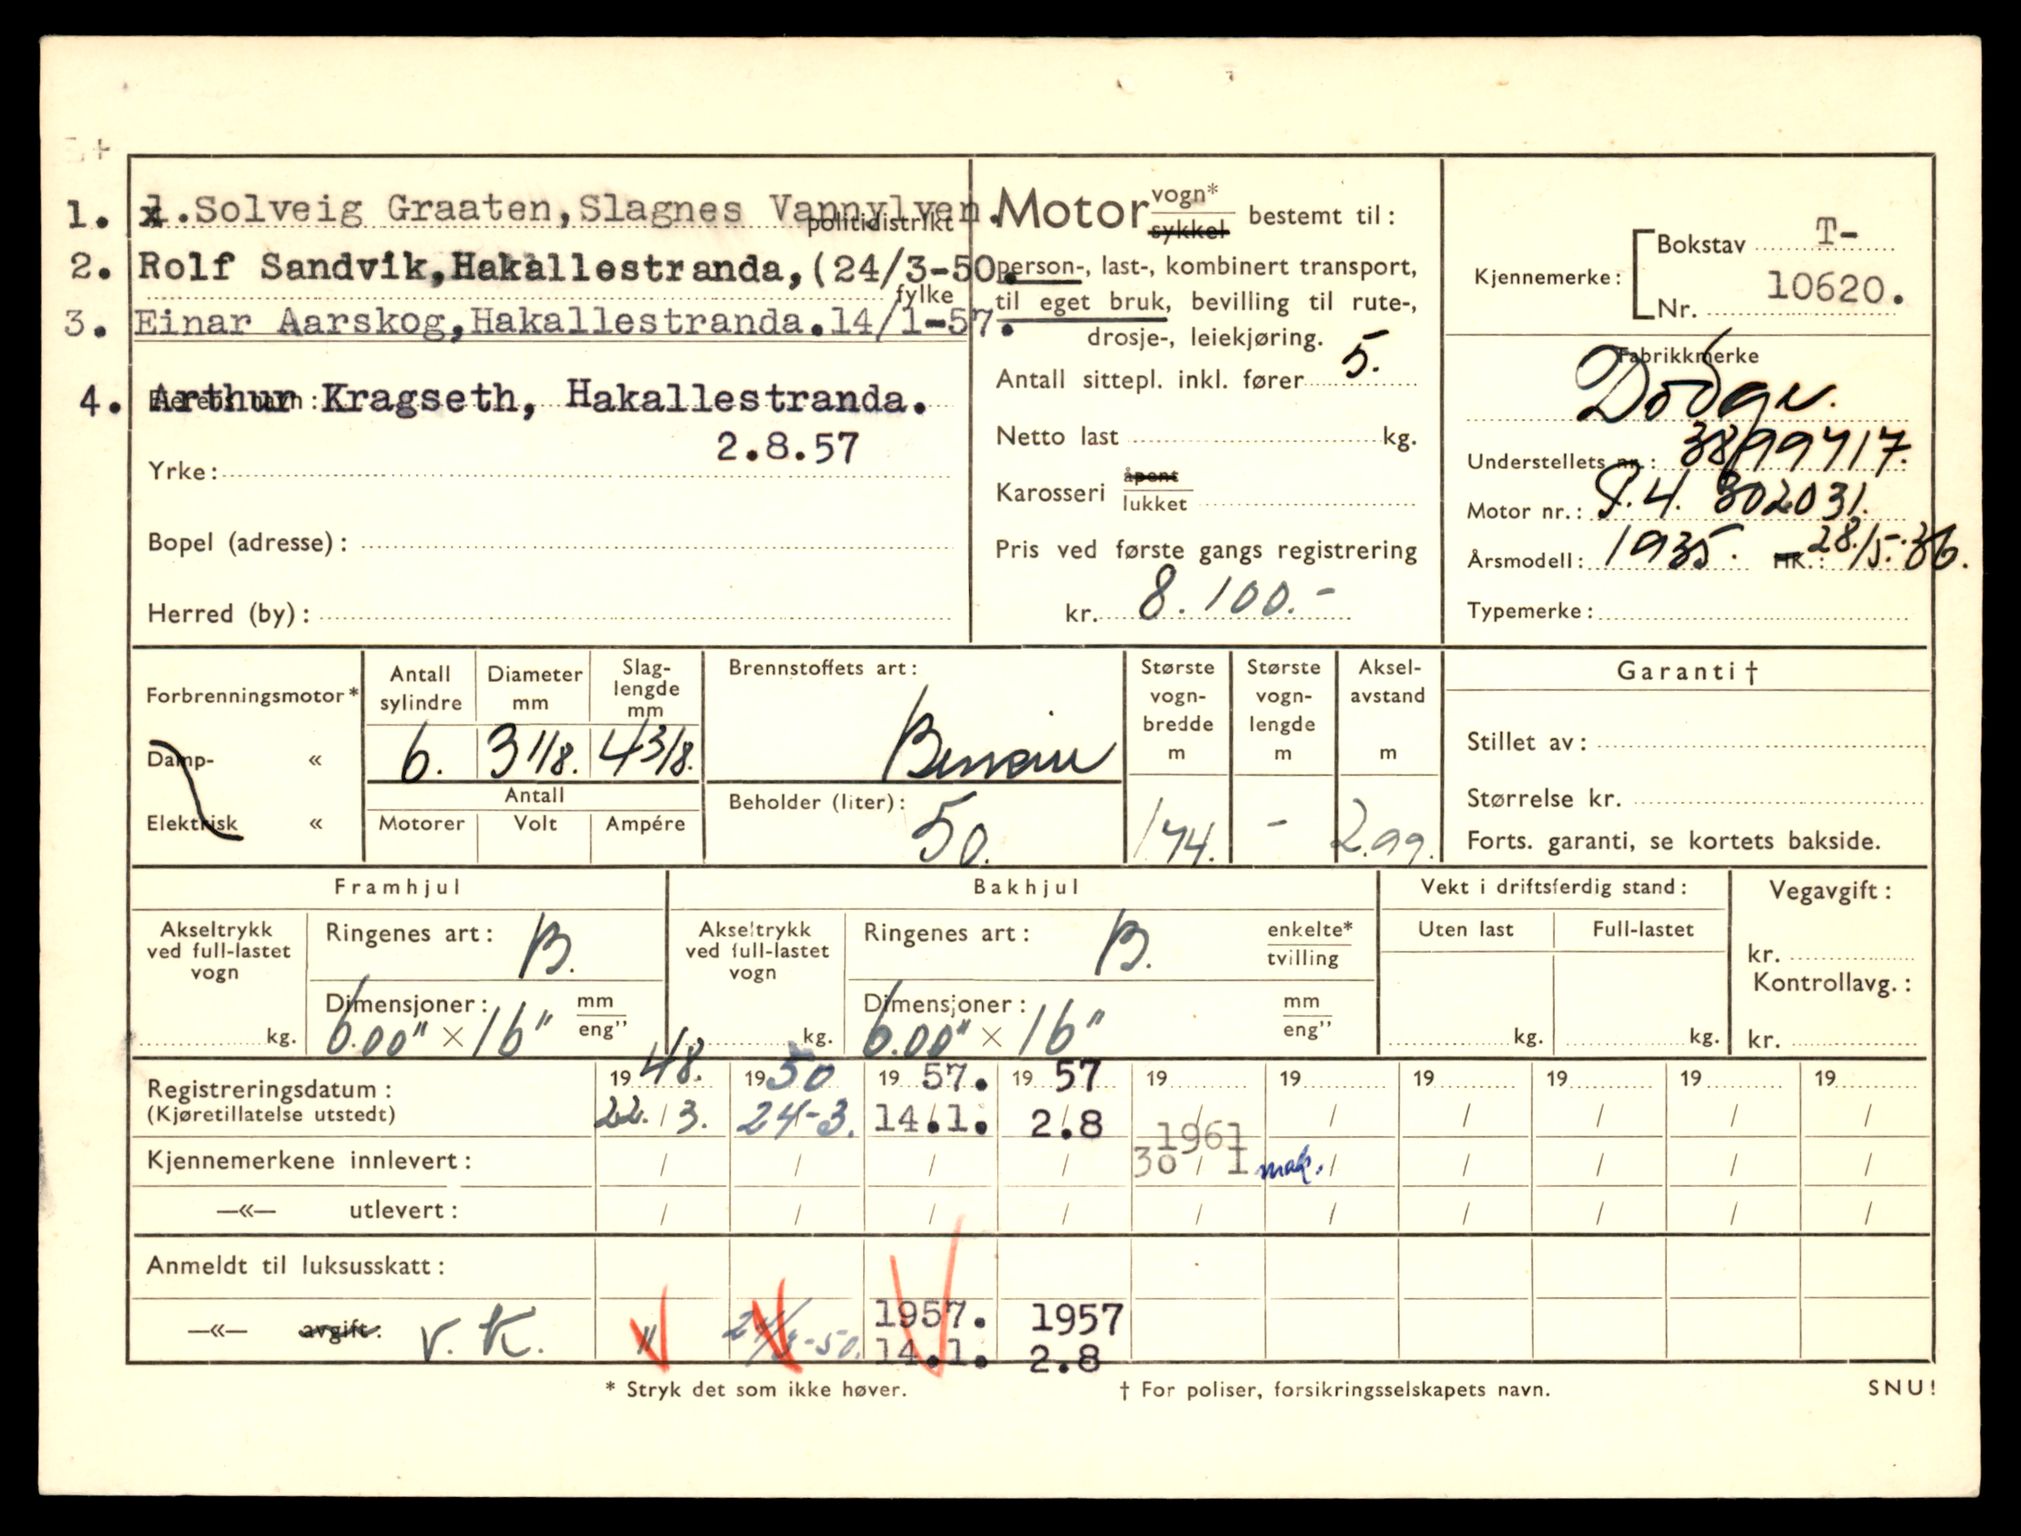 1. 1.Solveig Graaten,Slagnes Vannylven.
politidistrikt
2. Rolf Sandvik,Hakallestranda,(24/3-50.
fylke
3. Einar Aarskog,Hakallestranda.14/1-57.
4. Arthur Kragseth, Hakallestranda.
Eierens navn:
2.8.57
Yrke:
Bopel (adresse):
Herred (by):
Motor vogn* sykkel bestemt til:
person-, last-, kombinert transport,
til eget bruk, bevilling til rute-,
drosje-, leiekjøring.
Antall sittepl. inkl. fører 5.
Netto last kg.
Karosseri åpent lukket
Pris ved første gangs registrering
kr. 8.100.-
Kjennemerke: Bokstav T-
Nr. 10620.
Fabrikkmerke
Dodge.
Understellets nr.: 3899717.
Motor nr.: P.4. 302031.
Årsmodell: 1935. HK.: 28./5.-36.
Typemerke:
Forbrenningsmotor*
Damp- «
Elektrisk «
Antall sylindre
6.
Diameter mm
3 1/8.
Slag-lengde mm
4 3/8.
Antall
Motorer Volt Ampére
Brennstoffets art:
Bensin
Beholder (liter):
50.
Største vogn-bredde m
1.74.
Største vogn-lengde m
-
Aksel-avstand m
2.99.
Garanti †
Stillet av:
Størrelse kr.
Forts. garanti, se kortets bakside.
Framhjul
Akseltrykk ved full-lastet vogn
kg.
Ringenes art: B.
Dimensjoner: mm eng”
6.00" × 16"
Bakhjul
Akseltrykk ved full-lastet vogn
kg.
Ringenes art: B. enkelte* tvilling
Dimensjoner: mm eng”
6.00" × 16"
Vekt i driftsferdig stand:
Uten last Full-lastet
kg. kg.
Vegavgift:
kr.
Kontrollavg.:
kr.
Registreringsdatum: 19 48. 19 50 19 57. 19 57 19 19 19 19 19 19
(Kjøretillatelse utstedt) 22. / 3. 24-3. 14.1. 2.8 / / / / / /
1961
Kjennemerkene innlevert: / / / / 30 / 1 mak. / / / / /
—«— utlevert: / / / / / / / / / /
Anmeldt til luksusskatt:
—«— avgift: V. K. " 24/3-50. 1957. 1957
14.1. 2.8
* Stryk det som ikke høver.
† For poliser, forsikringsselskapets navn.
SNU!